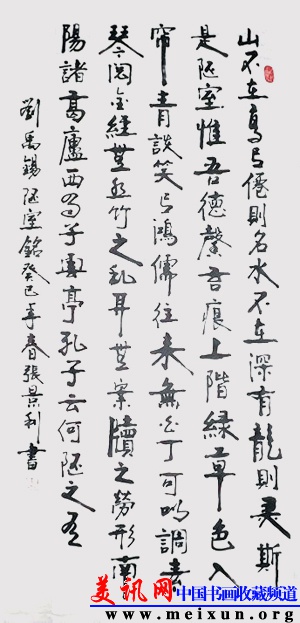 山不在高有僊則名水不在深有龍則灵斯
是陋室惟吾德馨苔痕上階緑草色入
帘青談笑有鴻儒往来無白丁可以調素
琴閲金經無丝竹之乱耳無案牘之勞形南
陽諸葛廬西蜀子雲亭孔子云何陋之有
劉禹锡陋室銘癸巳年春張景利書
美讯网 中国书画收藏频道
www.meixun.org